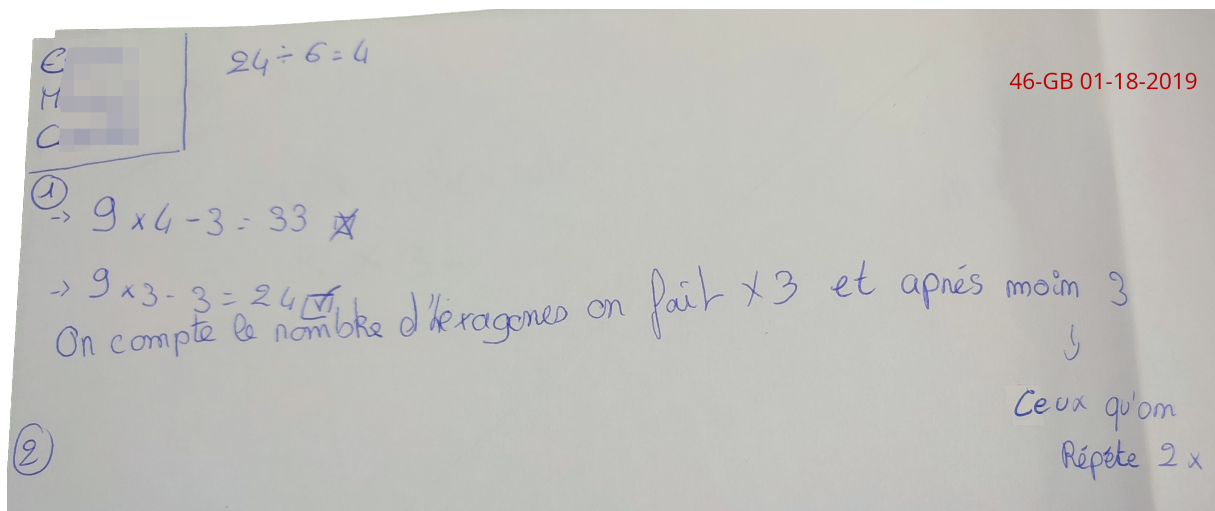 E
M
C
24 ÷ 6 = 4
46-GB 01-18-2019
1
-> 9 x 4 - 3 = 33
-> 9 x 3 - 3 = 24
On compte le nombre d'héxagones on fait x 3 et aprés moin 3
Ceux qu'on
Répéte 2 x
2